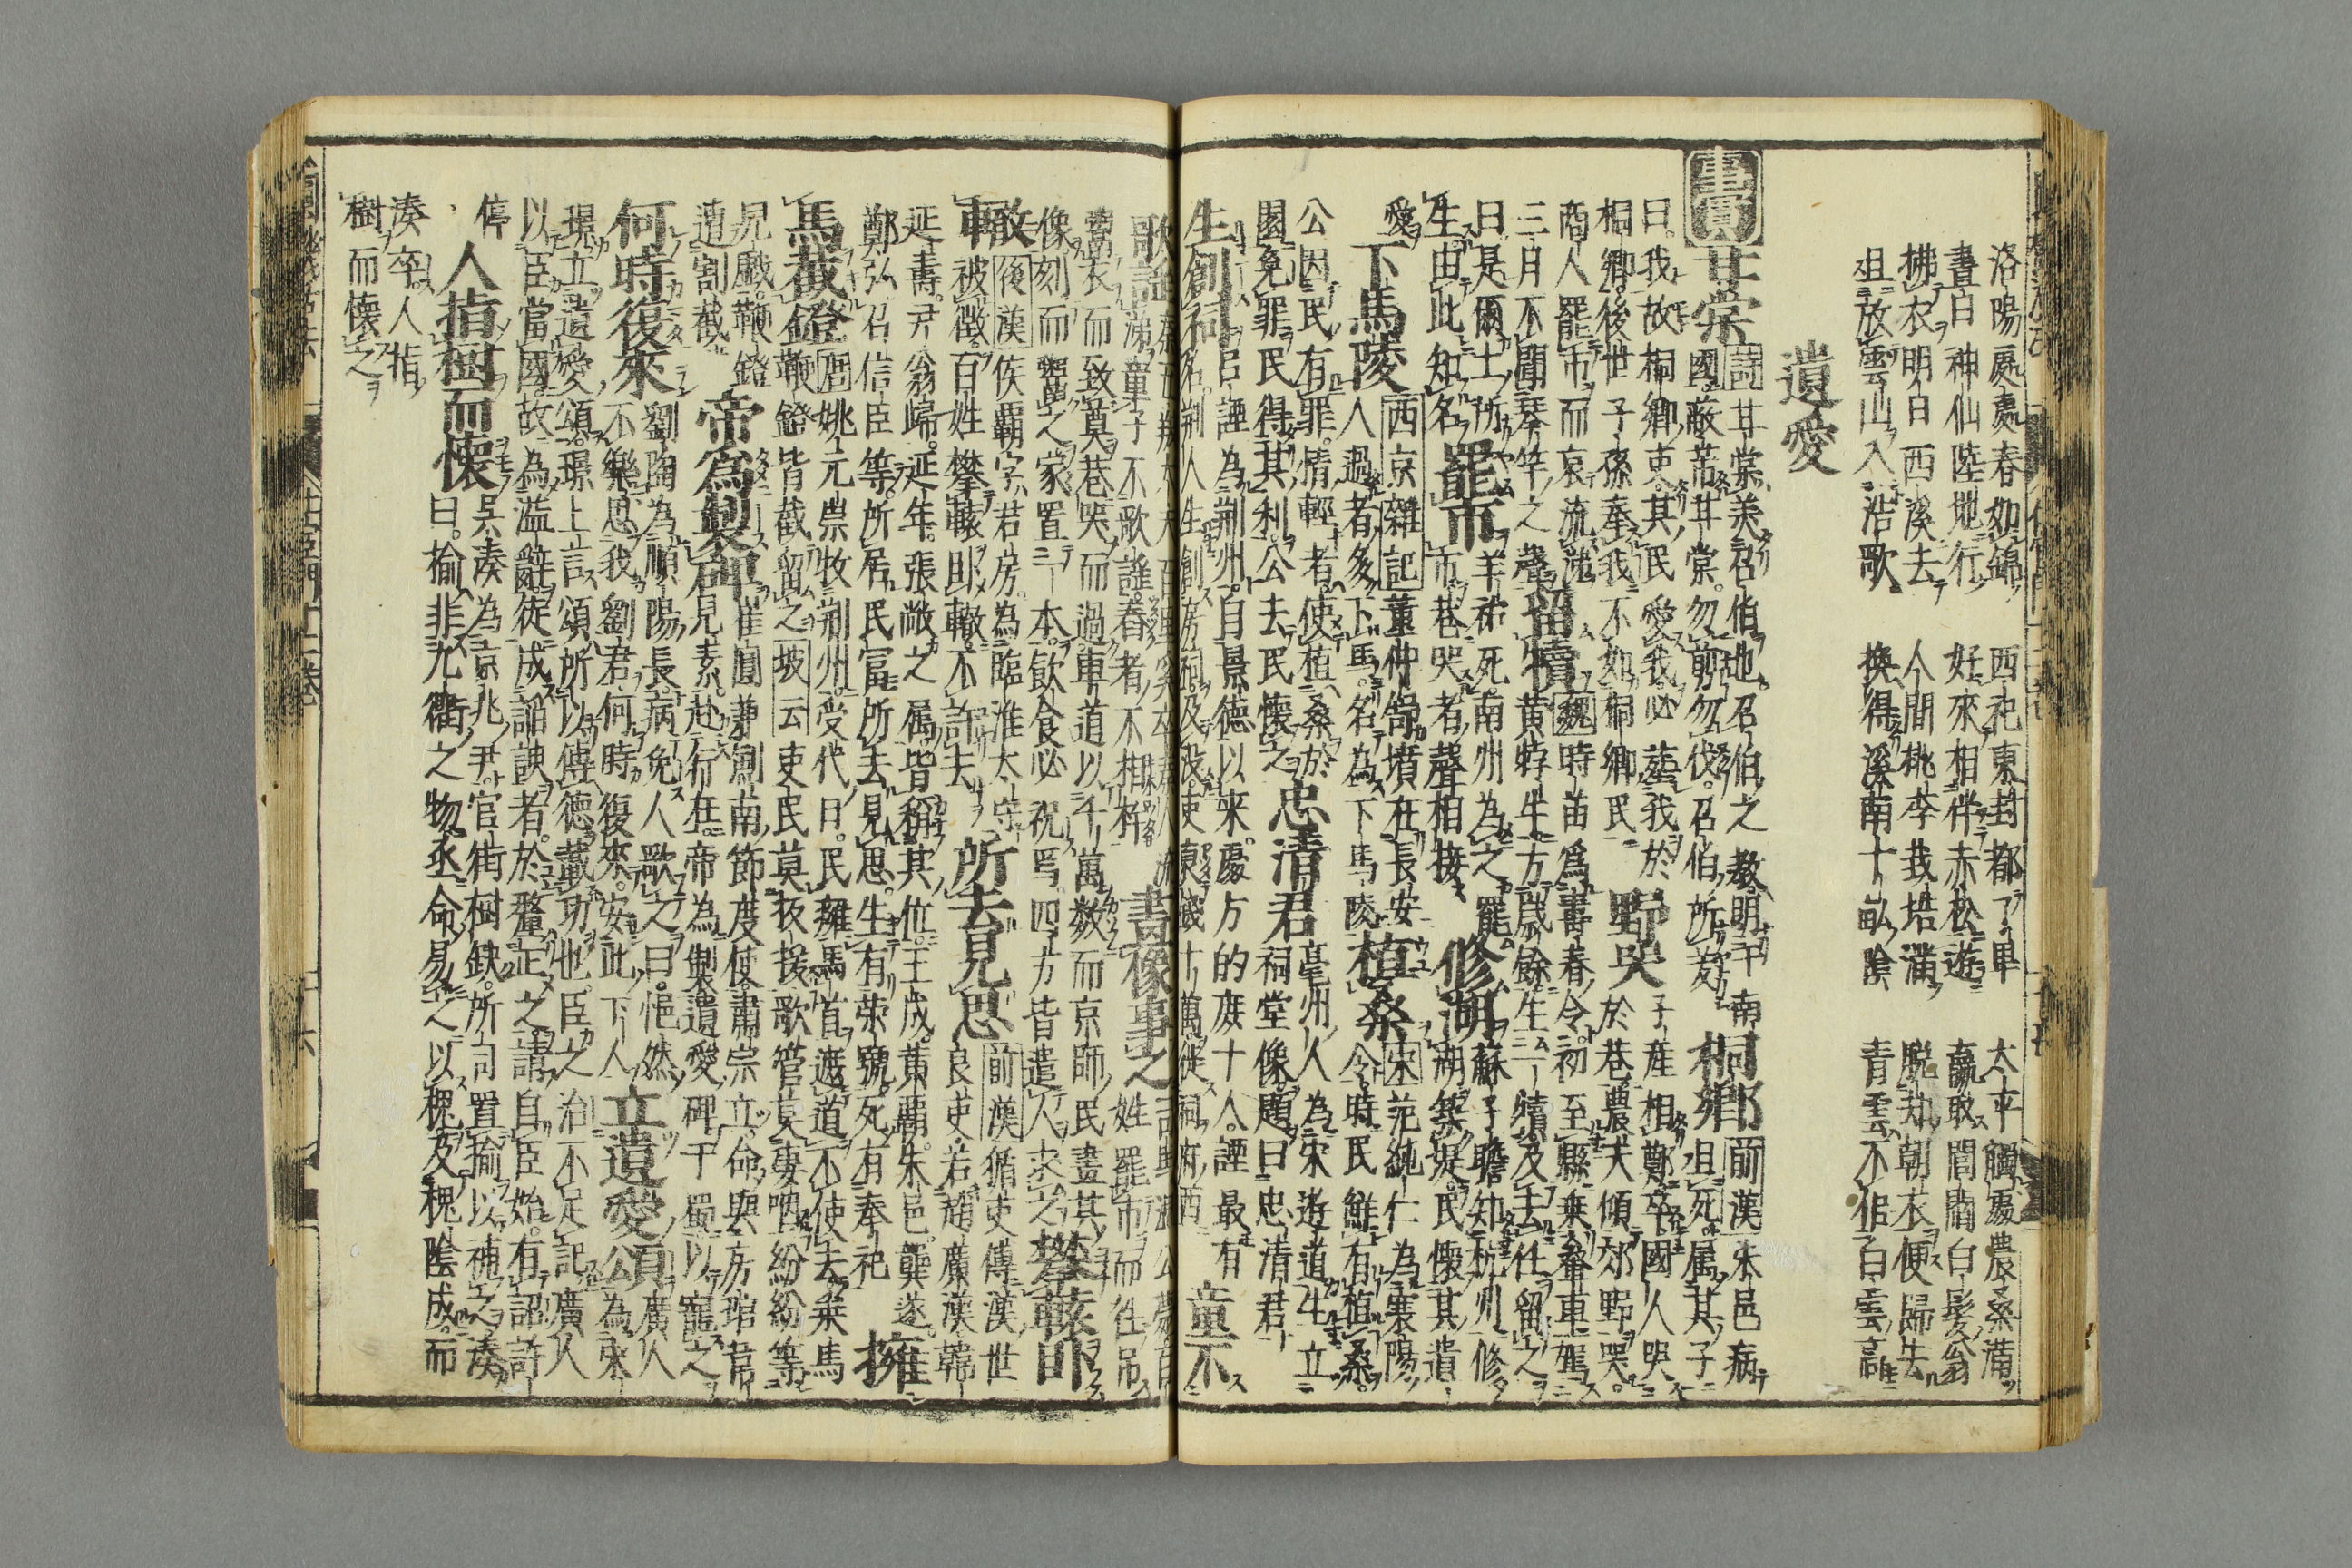 洛陽處處春如錦 西祀東封都了畢 太平觸處農桑滿
晝日神仙陸地行 好來相伴赤松遊 贏取閭閻白髮翁
拂衣明日西溪去 人間桃李栽培滿 脱却朝衣便歸去
且放雲山入浩歌 換得溪南十畝陰 青雲不似白雲高
遺愛
事實 甘棠 詩甘棠美召伯也召伯之教明于南
國蔽芾甘棠勿剪勿伐召伯所茇 桐鄉 前漢朱邑病且死属其子
曰我故桐鄉吏其民愛我必葬我於
桐鄉後世子孫奉我不如桐鄉民 野哭 子産相鄭卒國人哭於巷農夫傾郊野哭
商人罷市而哀流涕
三月不聞琴竽之聲 留犢 魏時苗為壽春令初至縣乗𨏉車駕黄牸牛方歳餘生一犢及去任留之
曰是爾土所生由此知名 罷市 羊祜死南州為之罷市巷哭者聲相接 修湖 蘇子瞻知杭州修湖築堤民懷其遺
愛 下馬陵 西京雜記董仲舒墳在長安人過者多下馬名為下馬陵 植桑 宋范純仁為襄陽令時民鮮有植桑
公因民有罪情輕者使植桑於
園免罪民得其利公去民懷之 忠清君 亳州人為宋遵道生立祠堂像題曰忠清君
生創祠 呂諲為荆州自景德以来處方的庶十人諲最有名荆人生創房祠及没吏裒錢十萬徙祠府西 童不
歌謡
涕童子不歌謡春者不相杵 畫像事之 姓罷市而徃吊
鬻衣而致奠巷哭而過車道以千萬數而京師民畫其
像刻而鬻之家置一本飲食必祝焉四方皆遣人求之 攀轅卧
轍 後漢侯覇字君房為臨淮太守
被徵百姓攀轅卧轍不許去 所去見思 前漢循吏傳漢世良吏若趙廣漢韓
延壽尹翁歸延年張敞之属皆稱其位王成黄覇朱邑龔遂
鄭弘召信臣等所居民富所去見思生有榮號死有奉祀 擁
馬截鐙 唐姚元崇牧荆州受代日民擁馬首遮道不使去乗馬
鞭鐙皆截留之 坡云吏民莫扳援歌管莫妻咽紛紛等
兒戲鞭鐙
遭割截 帝為製碑 崔圓兼劍南節度使肅宗立命與房琯韋
見素赴行在帝為製遺愛碑于蜀以寵之
何時復來 劉陶為順陽長病免人歌之曰悒然
不樂思我劉君何時復來安此下人 立遺愛頌 廣人為宋
璟立遺愛頌璟上言頌所以傳德載功也臣之治不足記廣人
以臣當國故為溢辭徒成謟諛者於釐正之請自臣始有詔許
停 人指樹而懐 呉湊為京兆尹官街樹缺所司置榆以補之湊
曰榆非九衢之物亟命易之以槐及槐陰成而
湊卒人指
樹而懐之